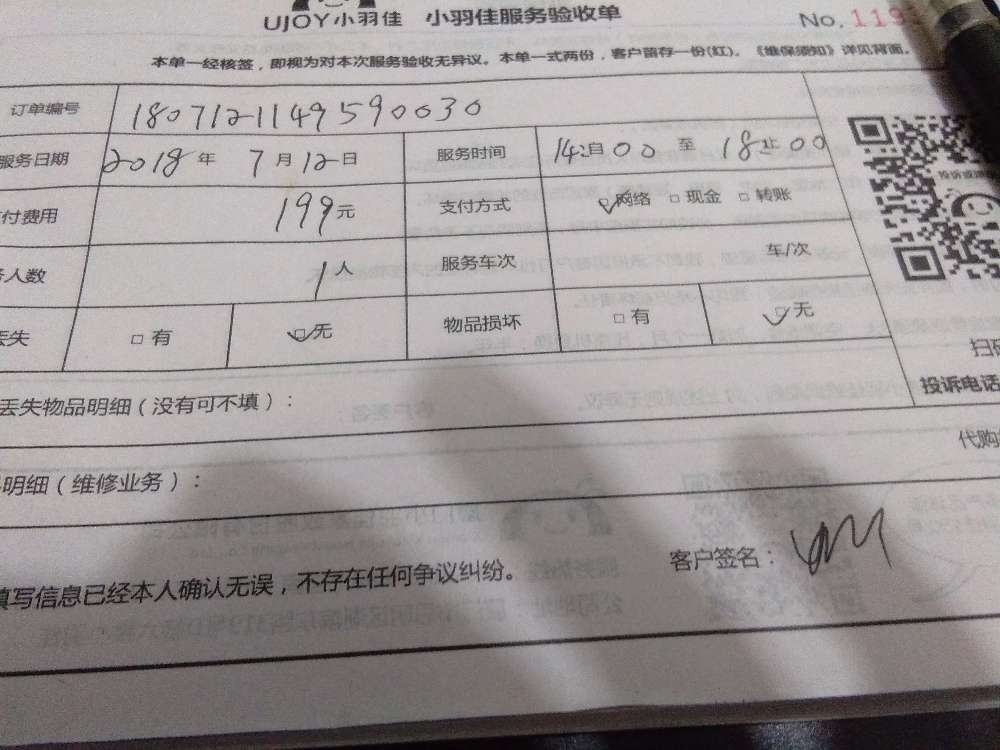 UJOY小羽佳 小羽佳服务验收单
No. 119
本单一经核签，即视为对本次服务验收无异议。本单一式两份，客户留存一份(红)。《维保须知》详见背面。
订单编号 1807121149590030
服务日期 2018 年 7 月 12 日 服务时间 14:自 00 至 18 止 00
付费用 199 元 支付方式 网络 □ 现金 □ 转账
人数 1 人 服务车次 车/次
丢失 □ 有 □ 无 物品损坏 □ 有 □ 无
扫码
投诉电话
丢失物品明细（没有可不填）：
代购
明细（维修业务）：
填写信息已经本人确认无误，不存在任何争议纠纷。
客户签名：